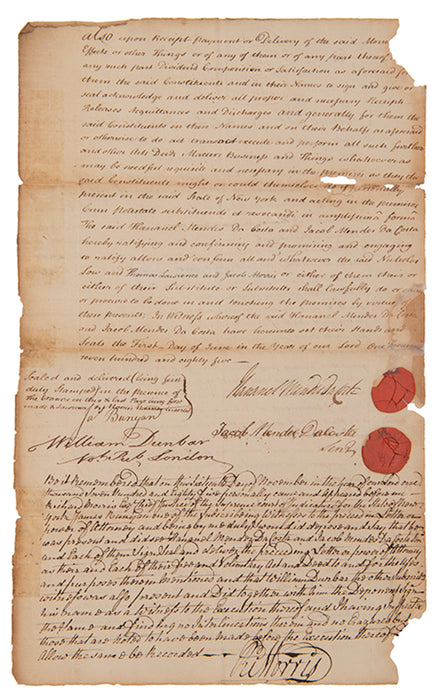 also upon Receipt Payment or Delivery of the said Monies
Effects or other Things or of any of them or of any part thereof
any such part Dividend Composition or Satisfaction as aforesaid for
them the said Constituents and in their Names to sign and give or
seal acknowledge and deliver all proper and necessary Receipts
Releases Acquittances and Discharges and generally for them the
said Constituents in their Names and on their Behalf as aforesaid
or otherwise to do act transact execute and perform all such further
and other Acts Deeds Matters Business and Things whatsoever as
may be needful requisite and necessary in the premises as they the
said Constituents might or could themselves do if personally
present in the said State of New York and acting in the premises
Cum Potestate substituendi et revocandi in amplissima forma
The said Hananel Mendes Da Costa and Jacob Mendes Da Costa
hereby ratifying and confirming and promising and engaging
to ratify allow and confirm all and whatsoever the said Nicholas
Low and Thomas Lawrence and Jacob Morris or either of them their or
either of their Substitute or Substitutes shall lawfully do or
or procure to be done in and touching the premises by virtue of
these presents. In Witness whereof the said Hananel Mendes Da Costa
and Jacob Mendes Da Costa have hereunto set their Hands and
Seals the First Day of June in the Year of our Lord One thousand
seven hundred and eighty five
Sealed and delivered (being first
duly Stamped) in the presence of
Hananel Mendes Da Costa
Ja Bunyan
Jacob Mendes Da Costa
William Dunbar
Not. Pub. London
Be it remembered that on this sixteenth Day of November in the year of our Lord one
thousand seven hundred and Eighty five personally came and appeared before me
Richard Morris Esq. Chief Justice of the Supreme court of Judicature for the state of New
York James Bunyan one of the subscribing Witnesses to the above
power of Attorney and being by me duly Sworn did depose and say that he
was present and did see Hananel Mendes Da Costa and Jacob Mendes Da Costa
and Each of them Sign Seal and deliver the preceeding Letter or power of Attorney
as their and Each of their free and Voluntary act and Deed to and for the Uses
and purposes therein Mentioned and that William Dunbar the other subscribing
witness was also present and Did together with him the Deponent sign
his name as a Witness to the Execution thereof and I having inspected
the same and finding no
those that are noted to have been made before the Execution thereof
allow the same to be Recorded
Ri Morris